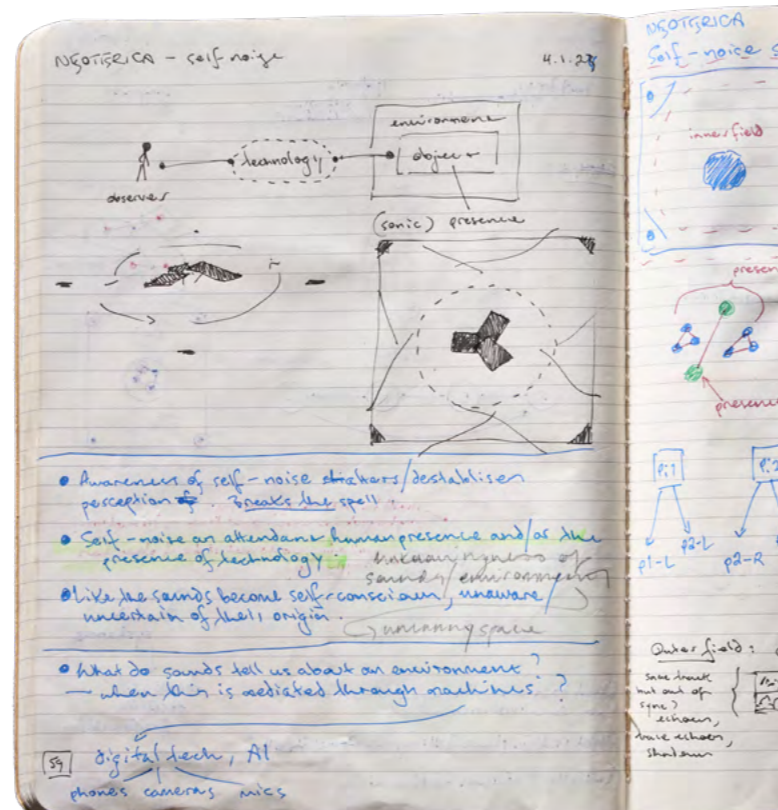 NEOTERICA - self noise
4.1.23
environment
technology
object
observer
(sonic) presence
• Awareness of self-noise shatters/destablises
perception. Breaks the spell
• Self-noise an attendant human presence and/or the
presence of technology.
unknowingness of
sounds/environment
• Like the sounds become self-conscious, unaware/
uncertain of their origin.
uncanny space
• What do sounds tell us about an environment?
— when this is mediated through machines?
digital tech, AI
phones cameras mics
59
NEOTERICA
Self-noise s
inner field
presen
presence
Pi1
Pi2
p1-L
p2-L
p2-R
Outer field:
same track
but out of
sync?
echoes,
base echoes,
shadows